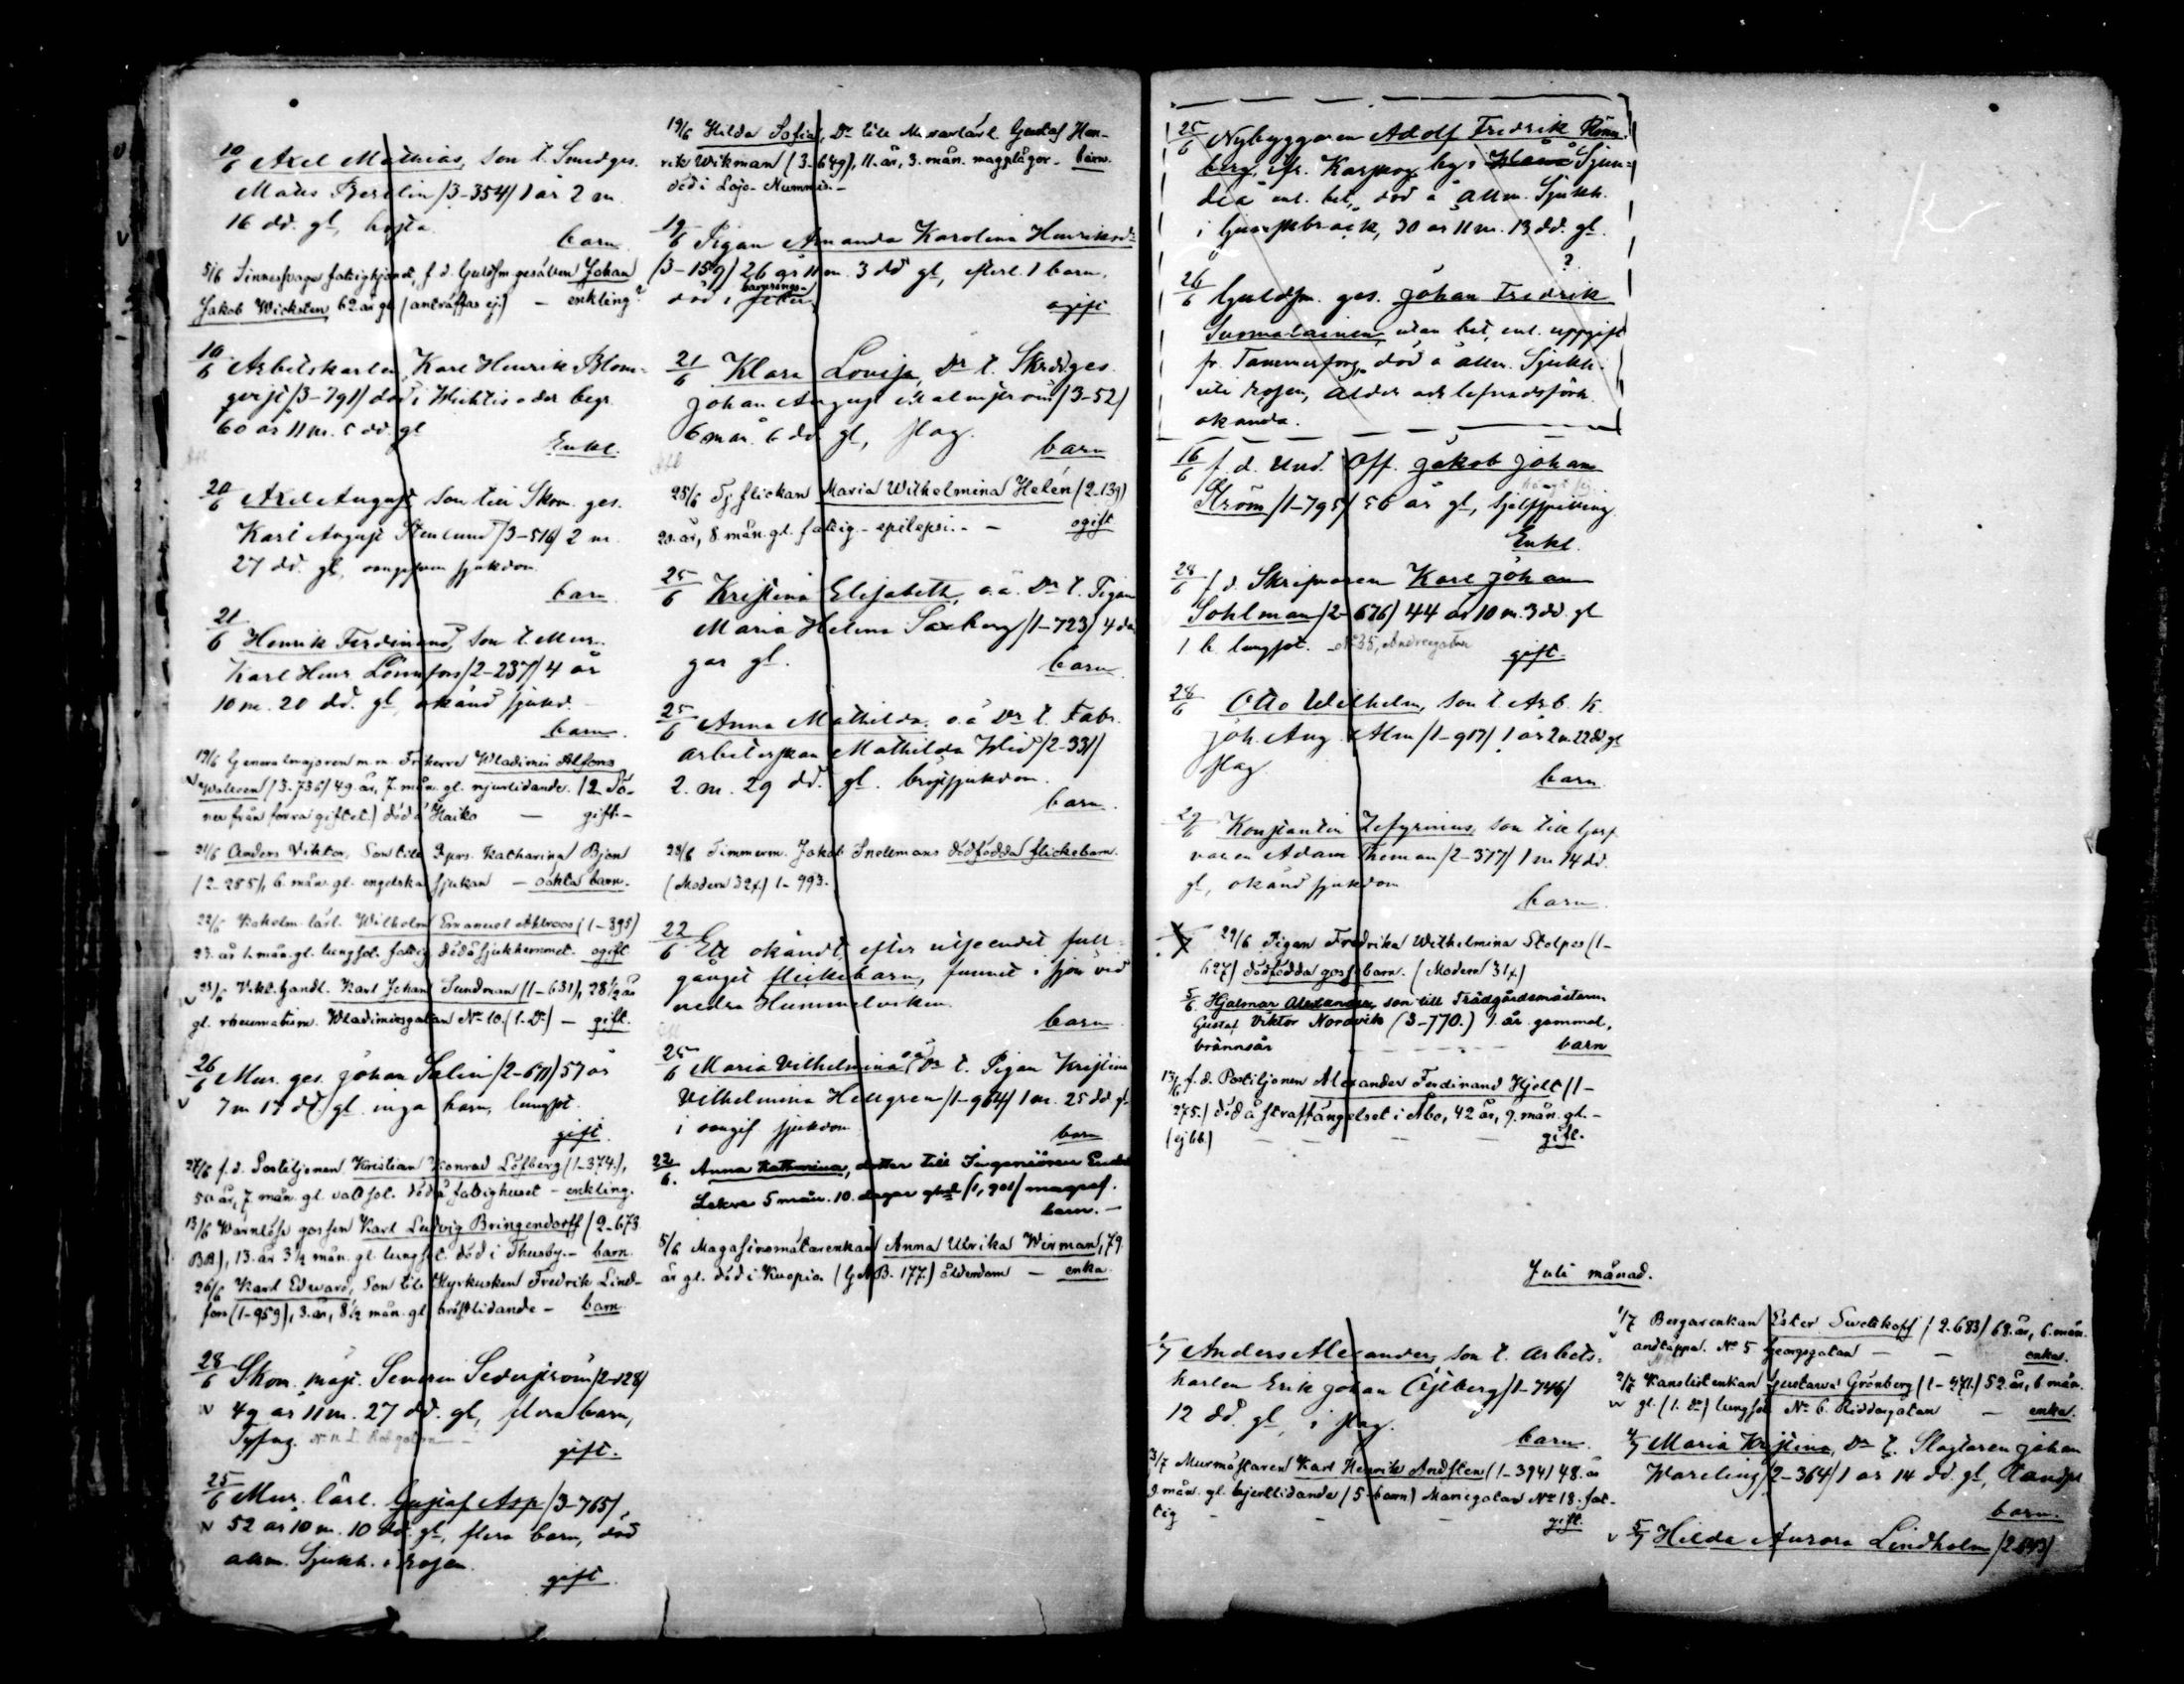 10/6 Axel Mathias, Son t. Smedges.
Mats Berelin /3-354/ 1 år 2 m.
16 dd. gl, hosta
barn
5/6 Sinnessvage fattighjonet, f. d. Guldsm gesällen Johan
Jakob Wicksten, 62 år gl (anträffas ej) – enkling?
10/6 Arbetskarlen, Karl Henrik Blom-
qvist /3-791/ död i Wichtis o der begr.
60 år 11 m. 5 dd. gl
Enkl.
20/6 Axel August Son till Skom. ges.
Karl August Stenlund /3-516/ 2 m.
27 dd. gl, sjukdom
barn
21/6 Henrik Ferdinand, Son t. Mur.
Karl Henr. Lönnfors /2-237/ 4 år
10 m. 20 dd. gl, okänd sjukd.
barn.
19/6 Generalmajoren m.m. Friherre Wladimir Alfons
Walleen /3-736/ 49. år, 7. mån. gl. njurlidande. (2 Sö-
ner från förra giftet.) död å Haiko – gift.-
21/6 Anders Viktor, Son till Katharina Bjon
/2-285/, 6. mån. gl. engelska sjukan – oäkta barn.
22/6 lärl. Wilhelm Emanuel Ahlroos (1-395)
23. år 1. mån. gl. lungsot. fattig död å sjukhemmet. ogift
23/6 Vikt. handl. Karl Johan Sundman (1-631), 28 1/2 år
gl. rheumatism. Wladimirsgatan No 10. (1. Dr.) – gift.
26/6 Mur. ges. Johan Salin /2-671/ 57 år
7 m 17 dd. gl inga barn, lungsot.
gift.
27/6 f. d. Postiljonen Kristian Konrad Löfberg (1-374.),
50 år, 7 mån. gl. vattsot. död å fattighuset – enkling.
13/6 Wärnlöse gossen Karl Ludvig Bringendorff /2-673
BB), 13. år 3 1/2 mån. gl. lungsot. död i Thusby. – barn.
26/6 Karl Edward, Son till Hyrkusken Fredrik Lind-
fors (1-959), 3. år, 8 1/2 mån. gl bröstlidande – barn.
28/6 Skom. mäst. Severin Sederström /2-128/
49 år 11 m. 27 dd. gl, flera barn,
Tyfus.
gift.
25/6 Mur. lärl. Gustaf Asp /3-765/,
52 år 10 m. 10 dd. gl, flera barn, död
allm. Sjukh. i rosen.
gift.
19/6 Hilda Sofia, Dr till Murarlärl. Gustaf Hen-
rik Wikman (3-649), 11. år, 3. mån. magplågor – barn.
död i Lojo-Nummis. –
19/6 Pigan Amanda Karolina Henriksdr
/3-159/ 26 år 11 m. 3 dd gl, efterl. 1 barn,
död i barnsängs-
feber
ogift
21/6 Klara Lovisa, Dr t. Skrädges.
Johan August Malmström /3-52/
6 mån. 6 dd. gl, slag.
barn
25/6 Tj. flickan Maria Wilhelmina Helén (2-139)
20. år, 8. mån. gl. fattig – epilepsi. – ogift
25/6 Kristina Elisabeth, o.ä. Dr t. Pigan
Maria Helena Saxberg /1-723/ 4 da
gar gl.
barn
25/6 Anna Mathilda, o.ä Dr t. Fabr.
arbeterskan Mathilda Wid /2-331/
2. m. 29 dd. gl. bröstsjukdom.
barn.
28/6 Timmerm. Jakob Snellmans dödfödda flickebarn.
(Modern 32 f.) 1-993.
22/6 Ett okändt, efter utseendet full-
gånget flickebarn, funnet i sjön vid
nedra Hummelviken.
barn
25/6 Maria Vilhelmina o.ä Dr t. Pigan Kristina
Vilhelmina Hellgren /1-964/ 1 m. 25 dd. gl
i sjukdom
barn
22/6. Anna Katharina, dotter till Ingeniören
5 mån. 10. dagar /1, 901/
barn. –
5/6 Magasinsmätarenkan Anna Ulrika Wirman, 79.
år gl. död i Kuopio. (G.A.B. 177.) ålderdom – enka.
25/6 Nybyggaren Adolf Fredrik
berg, fr. by i Sjun-
deå enl. bet, död å allm. Sjukh.
i ljumskbråck, 30 år 11 m. 13 dd. gl.
?
26/6 Guldsm. ges. Johan Fredrik
Suomalainen, utan bet, enl. uppgift
fr. Tammerfors, död å allm. Sjukh.
uti rosen, ålder och lefnadsförh.
okända.
16/6 f. d. Und. Off. Jakob Johan
Ström /1-795/ 56 år gl, Sjelfspilling
Enkl.
28/6 f. d. Skrifvaren Karl Johan
Sohlman /2-676/ 44 år 10 m. 3 dd. gl
1 b. lungsot. No 35, Andreegatan
gift.
28/6 Otto Wilhelm, Son t. Arb. K.
Joh. Aug. Alm /1-917/ 1 år 2 m. 22 dd gl
slag
barn
29/6 Konstantin Zefyrinus, Son till Garf
varen Adam Theman /2-317/ 1 m 14 dd.
gl, okänd sjukdom
barn.
29/6 Pigan Fredrika Wilhelmina Stolpes (1-
627) dödfödda gossebarn. (Modern 31 f.)
5/6. Hjalmar Alexander, son till Trädgårdsmästaren
Gustaf Viktor Nordvik (3-770.) 1. år gammal,
brännsår – – – – barn
13/6 f. d. Postiljonen Alexander Ferdinand Hjelt /1-
275./ död å straffängelset i Åbo, 42 år, 9. mån. gl. –
(ej bb.) – – – – gift.
Juli månad.
1/7 Anders Alexander, Son t. Arbets-
karlen Erik Johan Öjtberg /1-746/
12 dd. gl, i slag.
barn.
3/7 Murmästaren Karl Henrik Andsten (1-394) 48. år
9 mån. gl. hjertlidande (5 barn) Mariegatan No 18. fat-
tig – – – gift.
1/7 Bergarenkan Ester Swetikoff /2-683/ 68. år, 6. mån.
andtäppa. No 5 Georgsgatan – – enka.
2/7 Kanslistenkan Gustava Grönberg (1-471.) 52. år, 6. mån.
gl. (1. dr) lungsot No 6. Riddaregatan – enka.
4/7 Maria Kristina, Dr t. Slagtaren Johan
Wareling /2-364/ 1 år 14 dd. gl,
barn.
5/7 Hilda Aurora Lindholm /2-843/